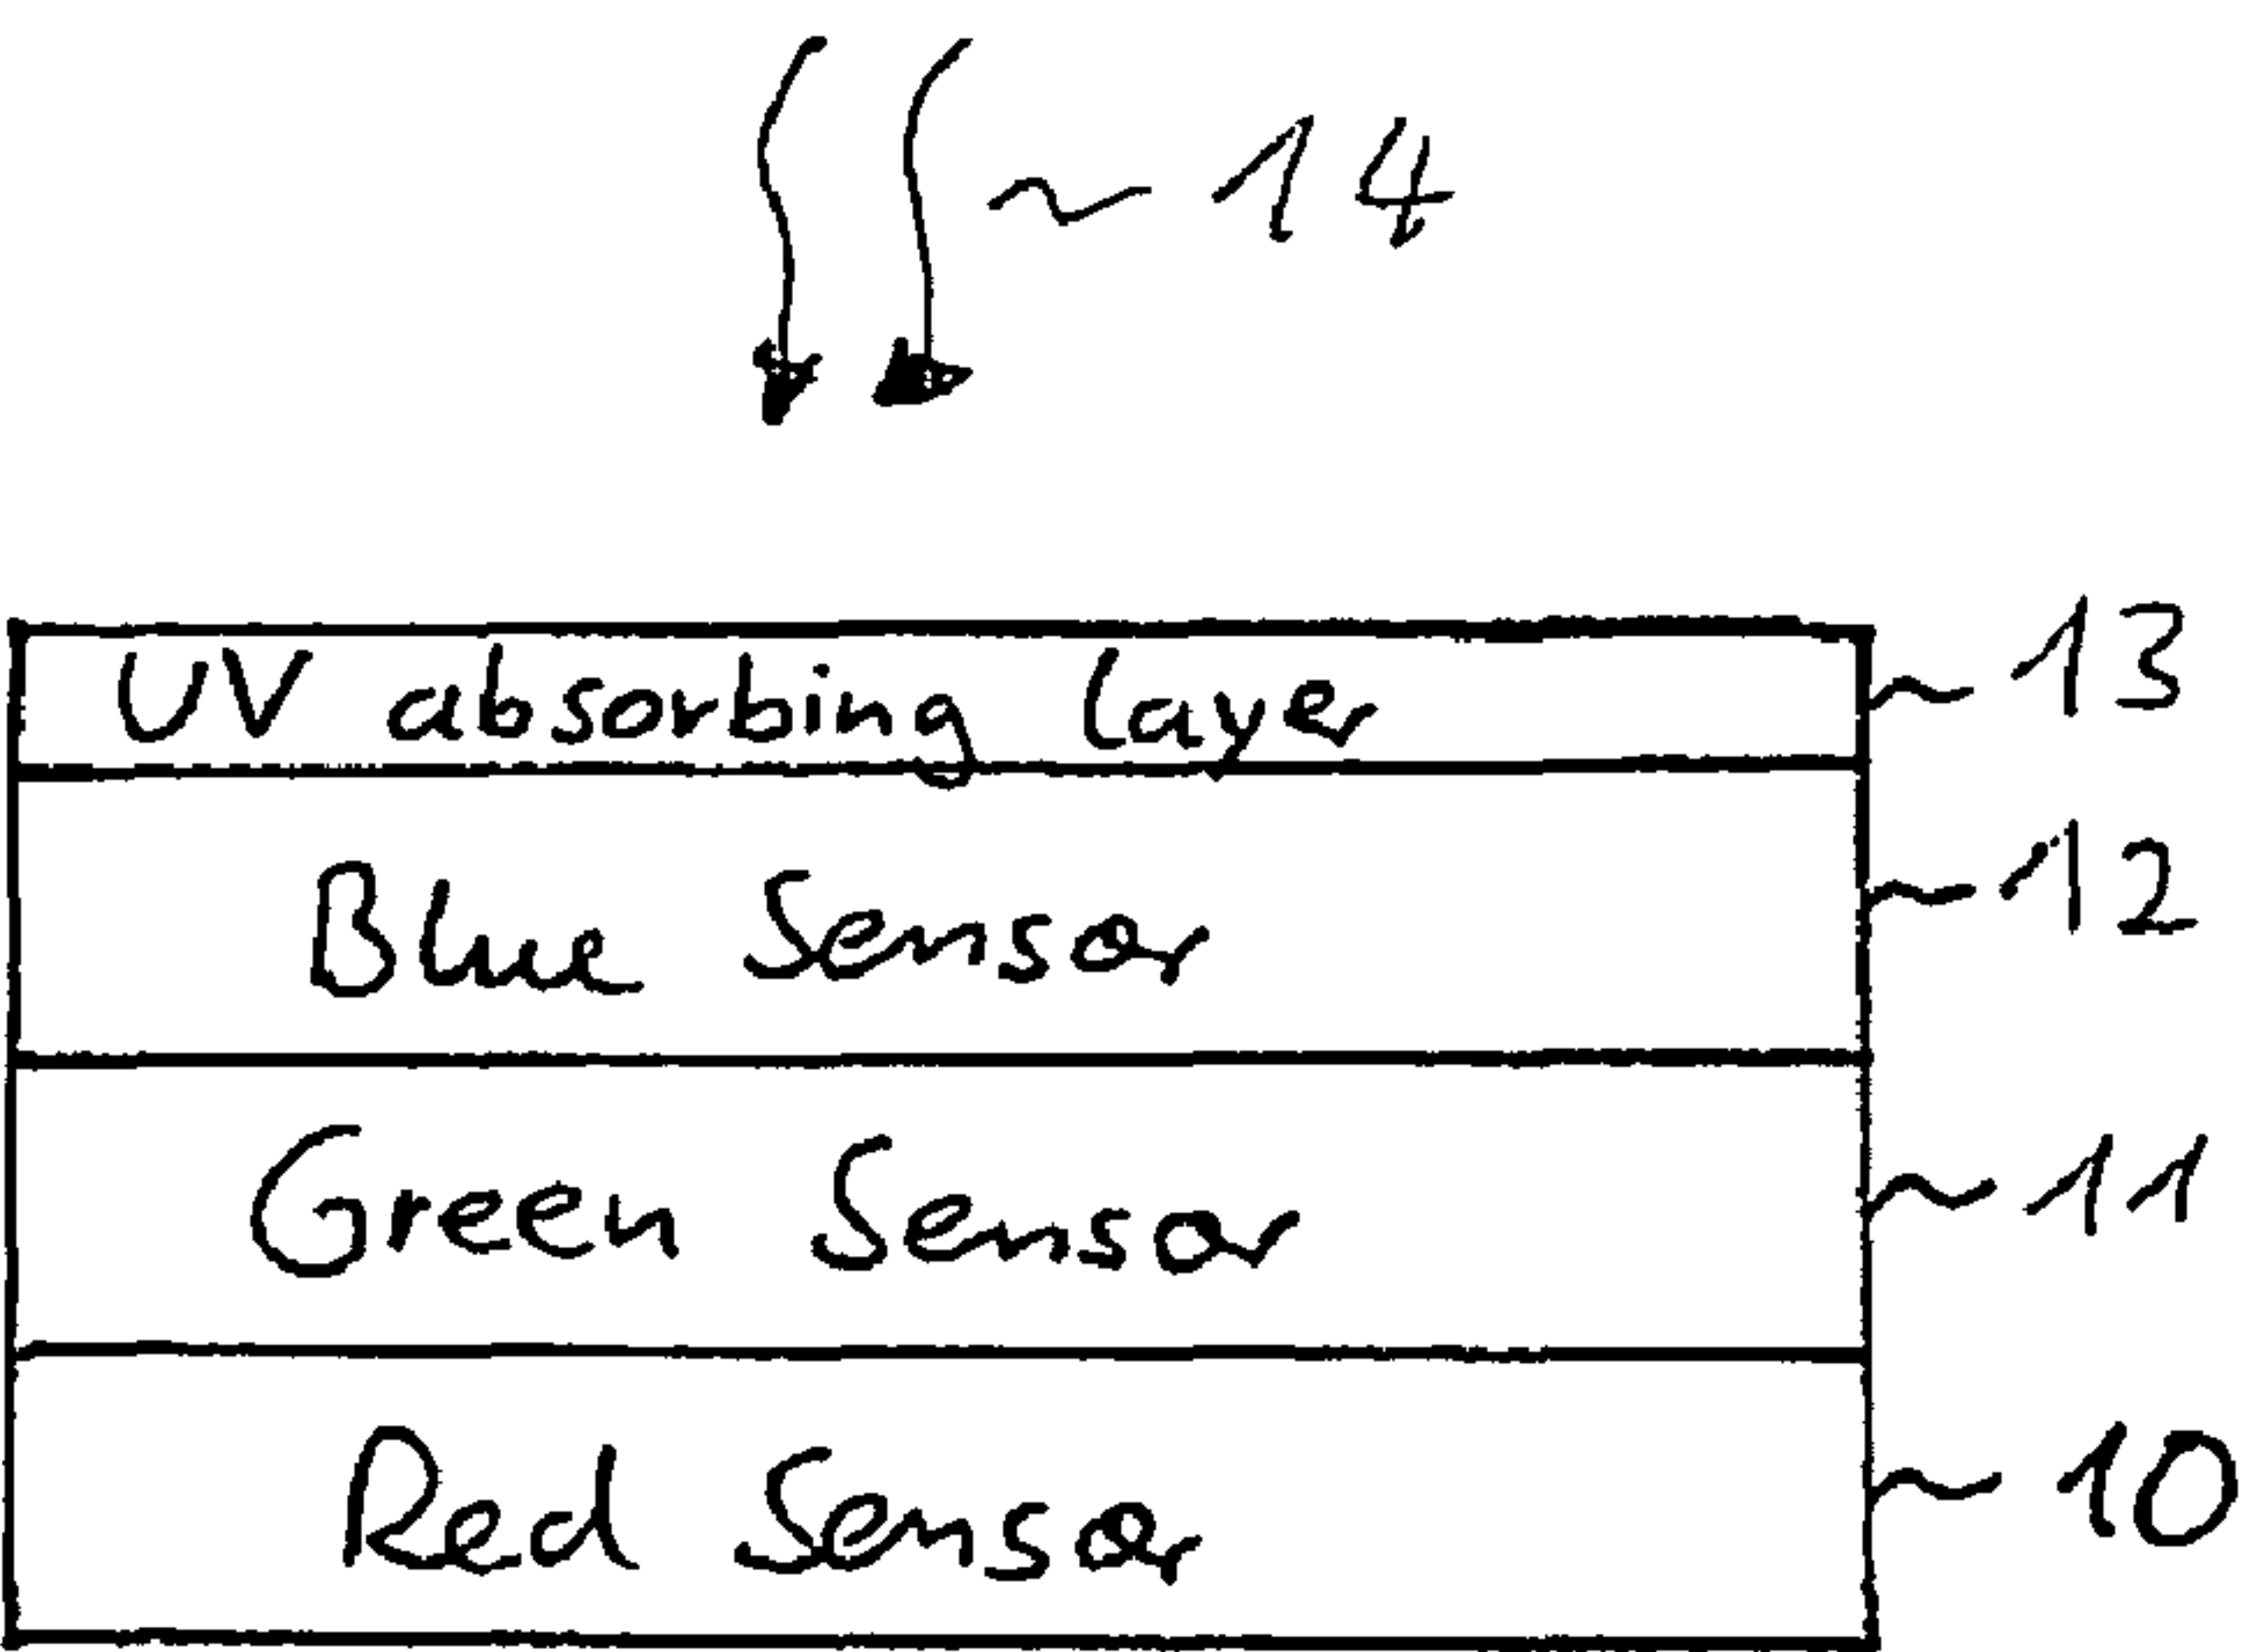 ~ 14
UV absorbing layer ~ 13
Blue Sensor ~ 12
Green Sensor ~ 11
Red Sensor ~ 10